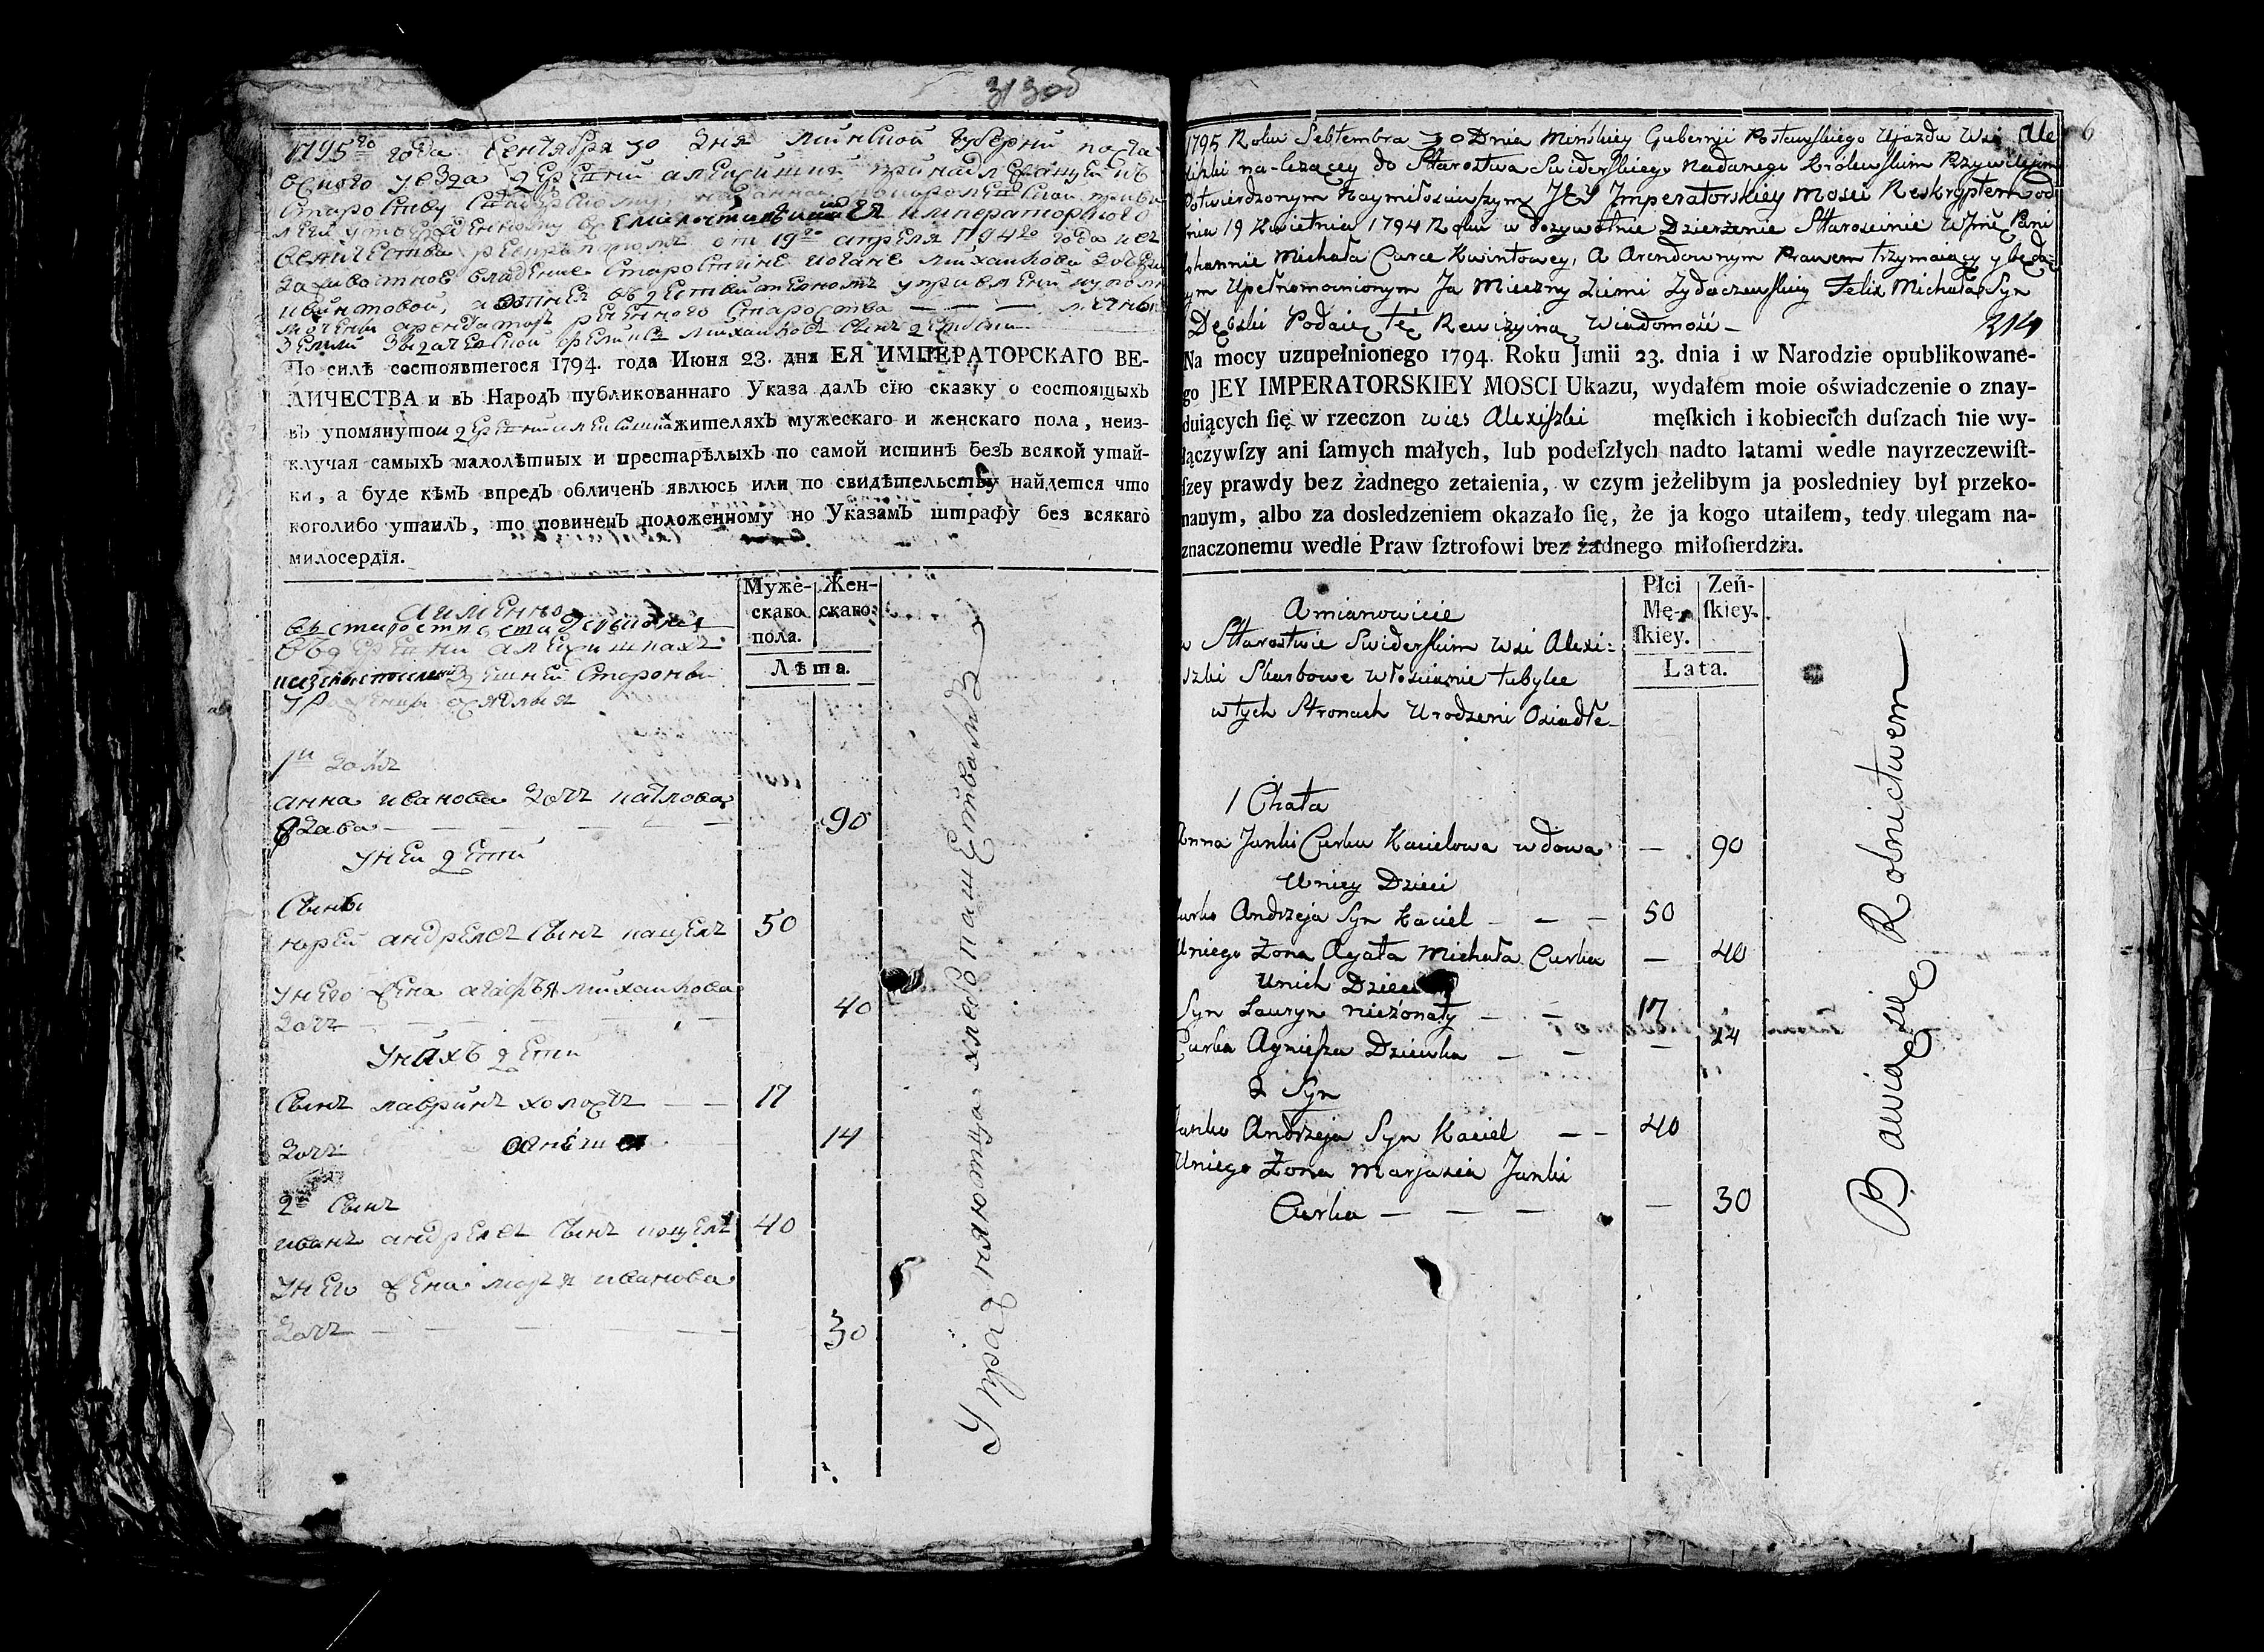 31 30об
1795го года Сентября 30 дня Минской Губерни поста
вского уезда деревни алексишки принадлежащей къ
Староству
легией утвержденному Всемилостивейшим ЕЯ императорского
величества рескриптомъ от 19го апреля 1794го года
владение Старостине иогане михайловой дочери
квинтовой, а
арендаторъ реченного Староства — — —
земли фелициъ михайловъ сынъ
По силѣ состоявшегося 1794. года Июня 23. дня ЕЯ ИМПЕРАТОРСКАГО ВЕ-
ЛИЧЕСТВА и въ Народъ публикованнаго Указа далъ сїю сказку о состоящыхъ
въ упомянутой деревни алексишкахъ жителяхъ мужескаго и женскаго пола, неиз-
ключая самыхъ малолѣтныхъ и престарѣлыхъ по самой истинѣ безъ всякой утай-
ки, а буде кѣмъ впредъ обличенъ явлюсь или по свидѣтельству найдется что
коголибо утаилъ, то повиненъ положенному по Указамъ штрафу без всякаго
милосердїя.
Муже-
скаго
пола.
Жен-
скаго
Лѣта.
а имЕнно
въ старостве
въ деревни алексишкахъ
здешней Стороны
1й домъ
анна иванова дочъ кацЕлова
вдава — — — — — 90
у нЕи дЕти
Сыны
юрей андреевъ Сынъ кацелъ 50
у нЕго жЕна агафья михайлова
дочъ — — — 40
у нихъ дЕти
Сынъ лавринъ холостъ — — 17
дочъ агнеша 14
2й Сынъ
иванъ андреевъ Сынъ кацелъ 40
у нЕго жЕна марья иванова
дочъ — — — — 30
Упражняютца хлебопашЕствамъ
6
1795 Roku Sebtembra 30 Dnia Minskiey Gubernji Postawskiego Ujazdu Wsi Ale
xiszki na-lezącey do Starostwa Swiderskiego nadanego Królewskim Przywilejem
Potwierdzonym Naymiłosciwszym JEY Imperatorskiey Mosci Reskryptem od
Dnia 19 Kwietnia 1794 Roku w dozywotnie Dzierzenie Staroscinie WJmć Pani
Johannie Michała Curce Kwintowey, A Arendownym Prawem trzymaiący y będą-
cym Upełnomocnionym Ja Mieczny Ziemi Zydaczewskiey Felix Michała Syn
Dębski Podaię tę Rewizyiną Wiadomość — 314
Na mocy uzupełnionego 1794. Roku Junii 23. dnia i w Narodzie opublikowane-
go JEY IMPERATORSKIEY MOSCI Ukazu, wydałem moie oświadczenie o znay-
duiących ſię w rzeczon wies Alexiszki męſkich i kobiecich duſzach nie wy-
łączywſzy ani ſamych małych, lub podeſzłych nadto latami wedle nayrzeczewiſt-
ſzey prawdy bez żadnego zetaienia, w czym jeżelibym ja posledniey był przeko-
nanym, albo za dosledzeniem okazało ſię, że ja kogo utaiłem, tedy ulegam na-
znaczonemu wedle Praw ſztrofowi bez żadnego miłoſierdzia.
Płci
Mę-
ſkiey.
Zeń-
ſkiey.
Lata.
Amianowicie
w Starostwie Swiderskim Wsi Alexi-
szki Skarbowe Włościanie tubylce
w tych Stronach Urodzeni Osiadłe-
1 Chata
Anna Janki Curka Kacielowa wdowa — 90
U niey Dzieci
Jurko Andrzeja Syn Kaciel — — — 50
U niego Żona Agata Michała Curka — 40
U nich Dzieci
Syn Łauryn nieżonaty — — 17
Curka Agnieſzka Dziewka — — — 14
2 Syn
Janko Andrzeja Syn Kaciel — — 40
U niego Żona Marjasia Janki
Curka — — — — 30
Bawią się Rolnictwem